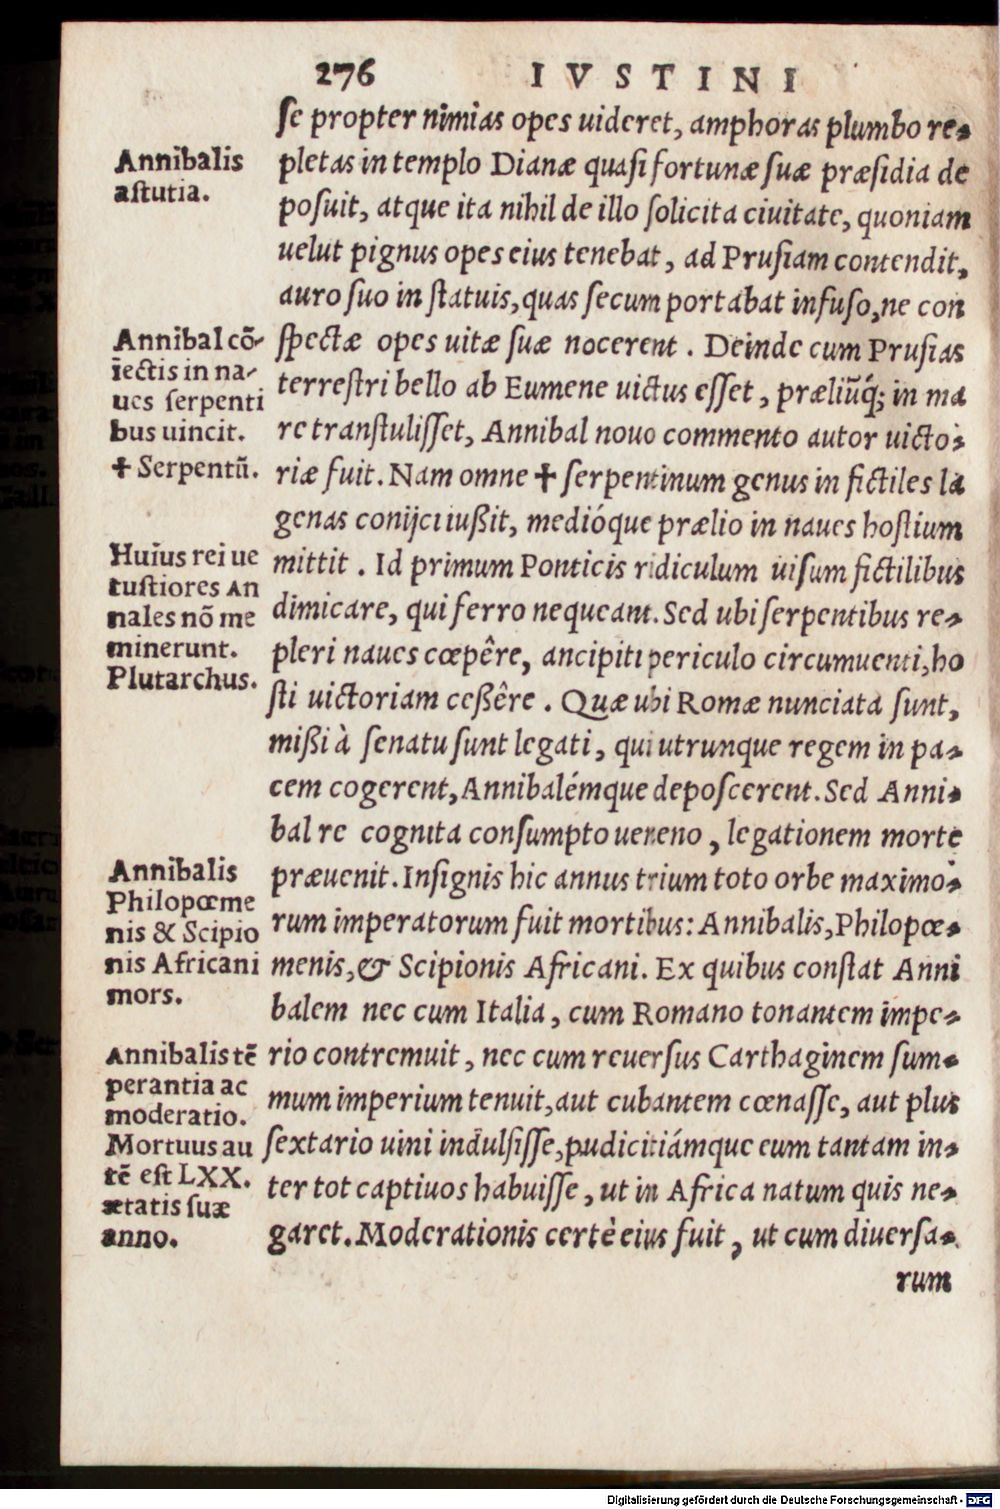 276 IVSTINI
ſe propter nimias opes uideret, amphoras plumbo re-
pletas in templo Dianæ quaſi fortunæ ſuæ præſidia de
poſuit, atque ita nihil de illo ſolicita ciuitate, quoniam
uelut pignus opes eius tenebat, ad Pruſiam contendit,
auro ſuo in ſtatuis, quas ſecum portabat infuſo, ne con
ſpectæ opes uitæ ſuæ nocerent. Deinde cum Pruſias
terreſtri bello ab Eumene uictus eſſet, præliũq́; in ma
re tranſtuliſſet, Annibal nouo commento autor uicto-
riæ fuit. Nam omne ✝ ſerpentinum genus in fictiles la
genas conijci iußit, medióque prælio in naues hoſtium
mittit. Id primum Ponticis ridiculum uiſum fictilibus
dimicare, qui ferro nequeant. Sed ubi ſerpentibus re-
pleri naues cœpêre, ancipiti periculo circumuenti, ho
ſti uictoriam ceßêre. Quæ ubi Romæ nunciata ſunt,
mißi à ſenatu ſunt legati, qui utrunque regem in pa-
cem cogerent, Annibalémque depoſcerent. Sed Anni-
bal re cognita conſumpto ueneno, legationem morte
præuenit. Inſignis hic annus trium toto orbe maximo-
rum imperatorum fuit mortibus: Annibalis, Philopœ-
menis, & Scipionis Africani. Ex quibus conſtat Anni
balem nec cum Italia, cum Romano tonantem impe-
rio contremuit, nec cum reuerſus Carthaginem ſum-
mum imperium tenuit, aut cubantem cœnaſſe, aut plus
ſextario uini indulſiſſe, pudicitiámque eum tantam in-
ter tot captiuos habuiſſe, ut in Africa natum quis ne-
garet. Moderationis certè eius fuit, ut cum diuerſa-
rum
Annibalis
aſtutia.
Annibal cõ-
iectis in na-
ues ſerpenti
bus uincit.
✝ Serpentũ.
Huius rei ue
tuſtiores An
nales nõ me
minerunt.
Plutarchus.
Annibalis
Philopœme
nis & Scipio
nis Africani
mors.
Annibalis tẽ
perantia ac
moderatio.
Mortuus au
tẽ eſt LXX.
ætatis ſuæ
anno.
Digitalisierung gefördert durch die Deutsche Forschungsgemeinschaft - DFG